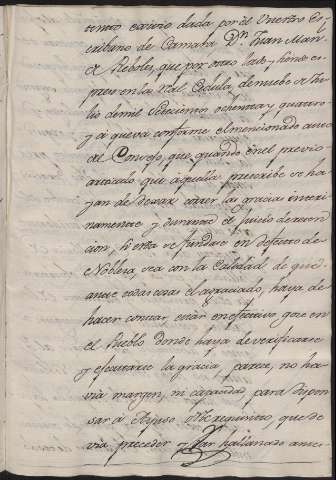 tento escrivio dada por el vuestro Es,
cribano de Camara Dn. Juan Man.
de Reboles, que por otro lado, y
presa en la Rl. Cedula, de nuebe de Ju
lio de mil Setecientos ochenta y quatro
y á que va conforme el mencionado auto
del Consejo, que quando en el previo
articulo que aquella prescribe se ha
yan de dexar correr la gracia interi
namente y durante el Juicio de reten
cion, si esta se fundare en defecto de
Nobleza, sea con la Calidad de que
ante todas cosas el agraciado, haya de
hacer constar, estár en efectivo goce en
el Pueblo donde haya de verificarse
y efectuarse la gracia, parece, no ha
via margen, ni capacidad, para dispen
sar á Arjuso del requisito, que de
via preceder y far hallanado ante=